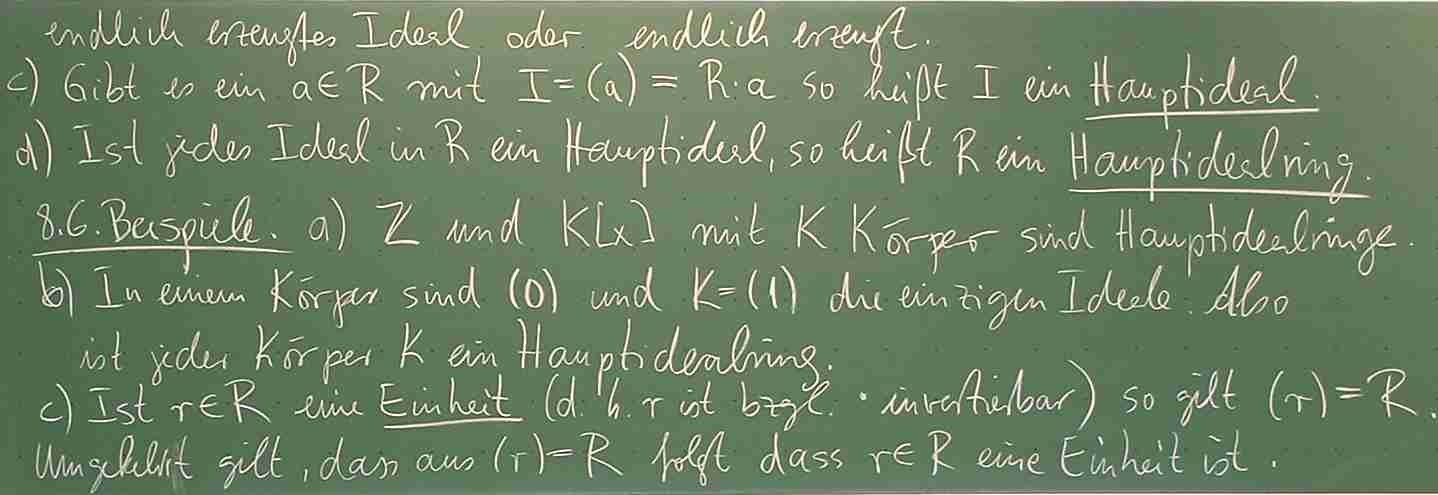 endlich erzeugtes Ideal oder endlich erzeugt.
c) Gibt es ein a∈R mit I=(a) = R·a so heißt I ein Hauptideal.
d) Ist jedes Ideal in R ein Hauptideal, so heißt R ein Hauptidealring.
8.6. Beispiele. a) Z und K[x] mit K Körper sind Hauptidealringe.
b) In einem Körper sind (0) und K=(1) die einzigen Ideale. Also
ist jeder Körper K ein Hauptidealring.
c) Ist r∈R eine Einheit (d.h. r ist bzgl. · invertierbar) so gilt (r)=R.
Umgekehrt gilt, dass aus (r)=R folgt dass r∈R eine Einheit ist.